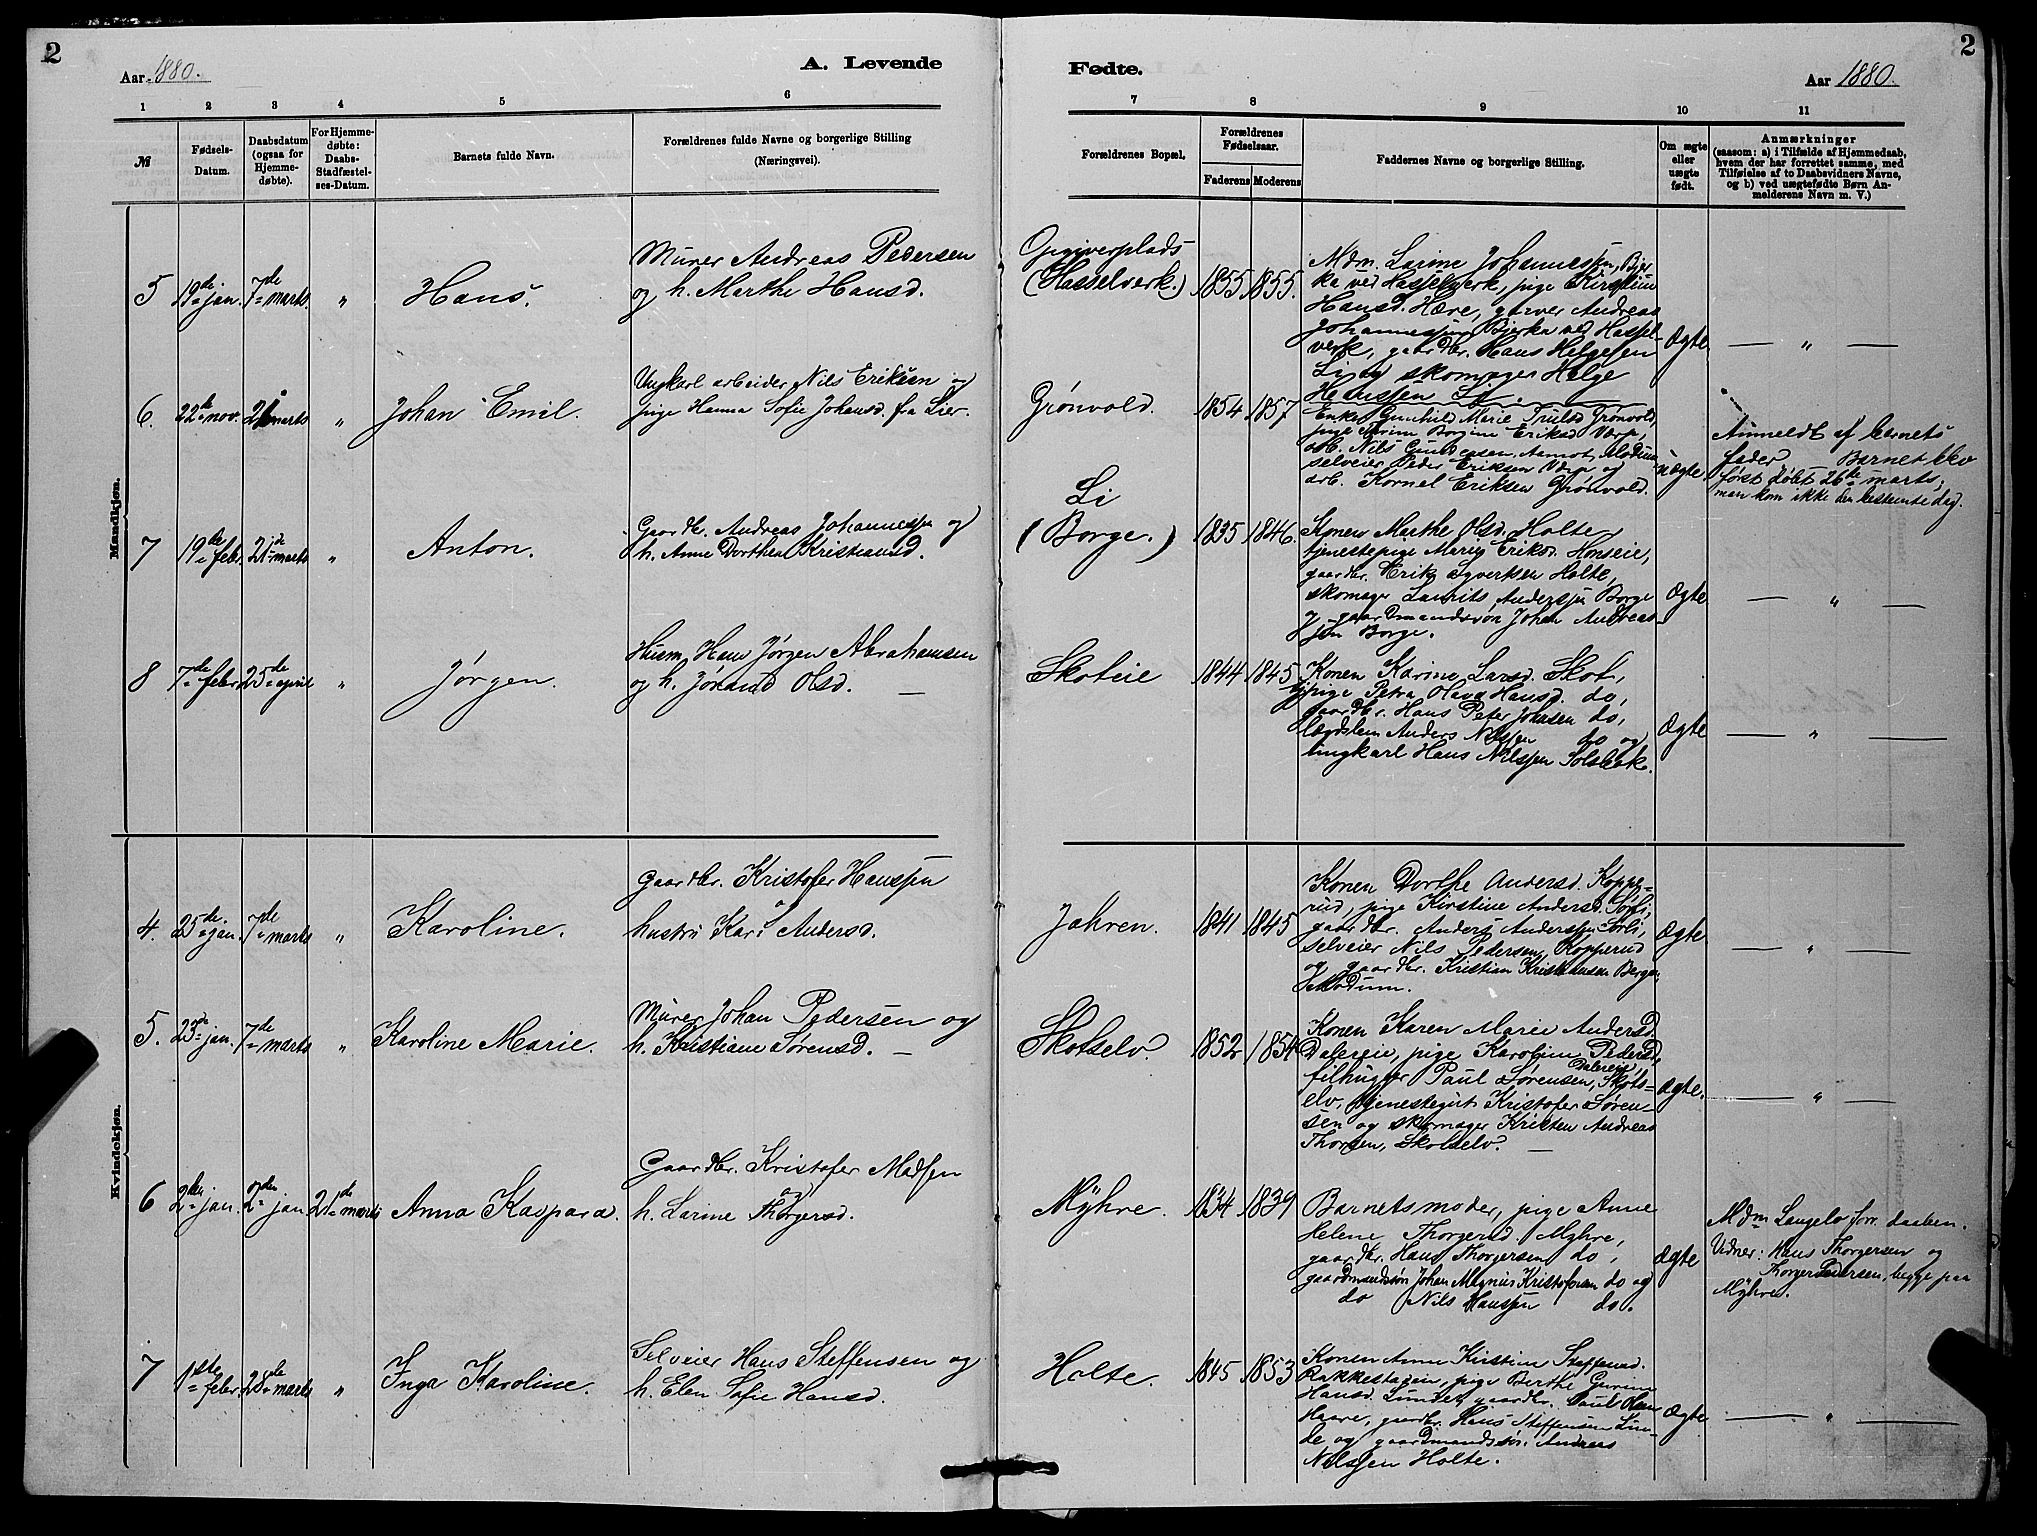 2
Aar 1880.
A. Levende
1 2 3 4 5 6
№
Fødsels-
Datum.
Daabsdatum
(ogsaa for
Hjemme-
døbte).
For Hjemme-
døbte:
Daabs-
Stadfæstel-
ses-Datum.
Barnets fulde Navn.
Forældrenes fulde Navne og borgerlige Stilling
(Næringsvei).
Mandkjøn.
5 19de jan. 7de marts " Hans.
Murer Andreas Pedersen
og h. Marthe Hansd.
6. 22de nov. marts " Johan Emil.
Ungkarl arbeider Nils Eriksen og
pige Hanna Sofie Johansd. fra Lier.
7 19de febr. 21de marts " Anton.
Gaardbr. Andreas Johannessen og
h. Anne Dorthea Kristiansd.
8 7de febr. 25de april " Jørgen.
Husm. Hans Jørgen Abrahamsen
og h. Jorand Olsd. —
Kvindekjøn.
4. 25de jan. 7de marts " Karoline.
Gaardbr. Kristofer Hanssen
hustru Kari Andersd.
5. 23de jan. 7de marts " Karoline Marie.
Murer Johan Pedersen og
h. Kristiane Sørensd. —
6 2den jan. 2den jan 21de marts Anna Kaspara.
Gaardbr. Kristofer Madsen
og
h. Larine Thorgersd.
7 1ste febr. 28de marts " Inga Karoline.
Selveier Hans Steffensen og
h. Elen Sofie Hansd.
2
Fødte.
Aar 1880.
7 8 9 10 11
Forældrenes Bopæl.
Forældrenes
Fødselsaar.
Faderens Moderens
Faddernes Navne og borgerlige Stilling.
Om ægte
eller
uægte
født.
Anmærkninger
(saasom: a) i Tilfælde af Hjemmedaab,
hvem der har forrettet samme, med
Tilføielse af to Daabsvidners Navne,
og b) ved uægtefødte Børn An-
melderens Navn m. V.)
Opgiverplads
(Hasselverk.) 1855 1855.
Mdm. Larine Johannessen, Bjer-
ka ved Hasselverk, pige Kirstine
Hansd. Hære, garver Andreas
Johannessen Bjerka ved Hassel-
verk, gaardbr. Hans Helgesen
Li og skomager Helge
Hanssen Li.
Ægte — " —
Grønvold. 1854. 1857
Enke Gunhild Marie Trulsd Grønvold,
pige Karine Eriksd
arb. Nils Gundersen, Aamot, Modum
selveier Peder Eriksen og
arb. Kornel Eriksen Grønvold.
uægte.
Anmeldt af barnets
fader Barnet blev
først døbt 26de marts,
man kom ikke den bestemte dag.
Li
(Borge.) 1835 1846.
Konen Marthe Olsd. Holte,
tjenestepige Maren Eriksd. Horseie,
gaardbr. Erik Syvertsen Holte,
skomager Laurits Anderssen Borge
og gaardmandssøn Johan Andreas-
sen Borge.
Ægte — " —
Skoteie 1844 1845
Konen Karine Larsd. Skot,
tjpige Petra Olava Hansd. do,
gaardbr. Hans Peter Johnsen do,
lægdslem Anders Nilssen do og
ungkarl Hans Nilssen Solbak.
Ægte — " —
Jahren. 1841 1845
Konen Dorthe Andersd. Koppe-
rud, pige Kirstine Andersd. Sørli,
gaardbr. Anders Anderssen Sørli,
selveier Nils Pedersen, Kopperud
og gaardbr. Kristian Kristiansen Berger,
Modum.
Ægte — " —
Skotselv. 1852 1854
Konen Karen Marie Andersd.
Daleeie, pige Karoline Pedersd,
Daleeie,
filhugger Paul Sørensen, Skots-
elv, tjenestegut Kristofer Søren-
sen og skomager Kristen Andreas
Thorsen, Skotselv. —
Ægte. — " —
Myhre. 1834 1839
Barnets moder, pige Anne
Helene Thorgersd. Myhre,
gaardbr. Hans Thorgersen do,
gaardmandssøn Johan Magnus Kristofersen do og
do Nils Hanssen do.
Ægte
Mdm Langelo forr. daaben.
Vidner: Hans Thorgersen og
Thorger Pedersen, begge paa
Myhre.
Holte. 1845 1853
Konen Anne Kirstine Steffensd.
Rakkestagen, pige Berthe Gurine
Hansd. Lunde, gaardbr. Paul Olsen
Haare, gardbr. Hans Steffensen Lun-
de og gaardmandssøn Andreas
Nilssen Holte.
Ægte — " —